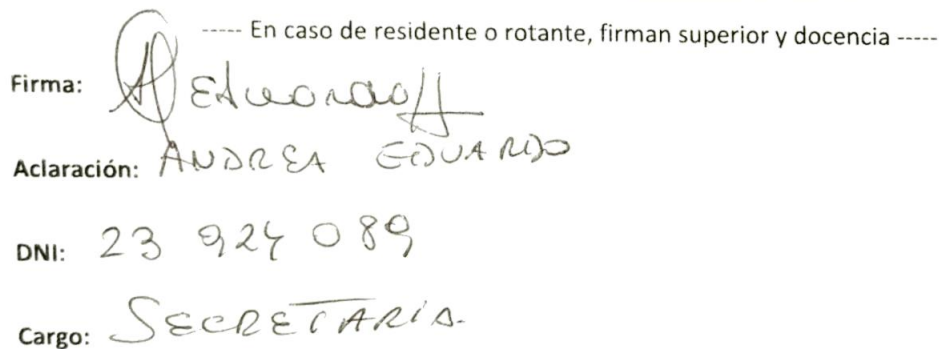 ----- En caso de residente o rotante, firman superior y docencia -----
Firma: A Eduardo
Aclaración: ANDREA EDUARDO
DNI: 23 924 089
Cargo: SECRETARIA.